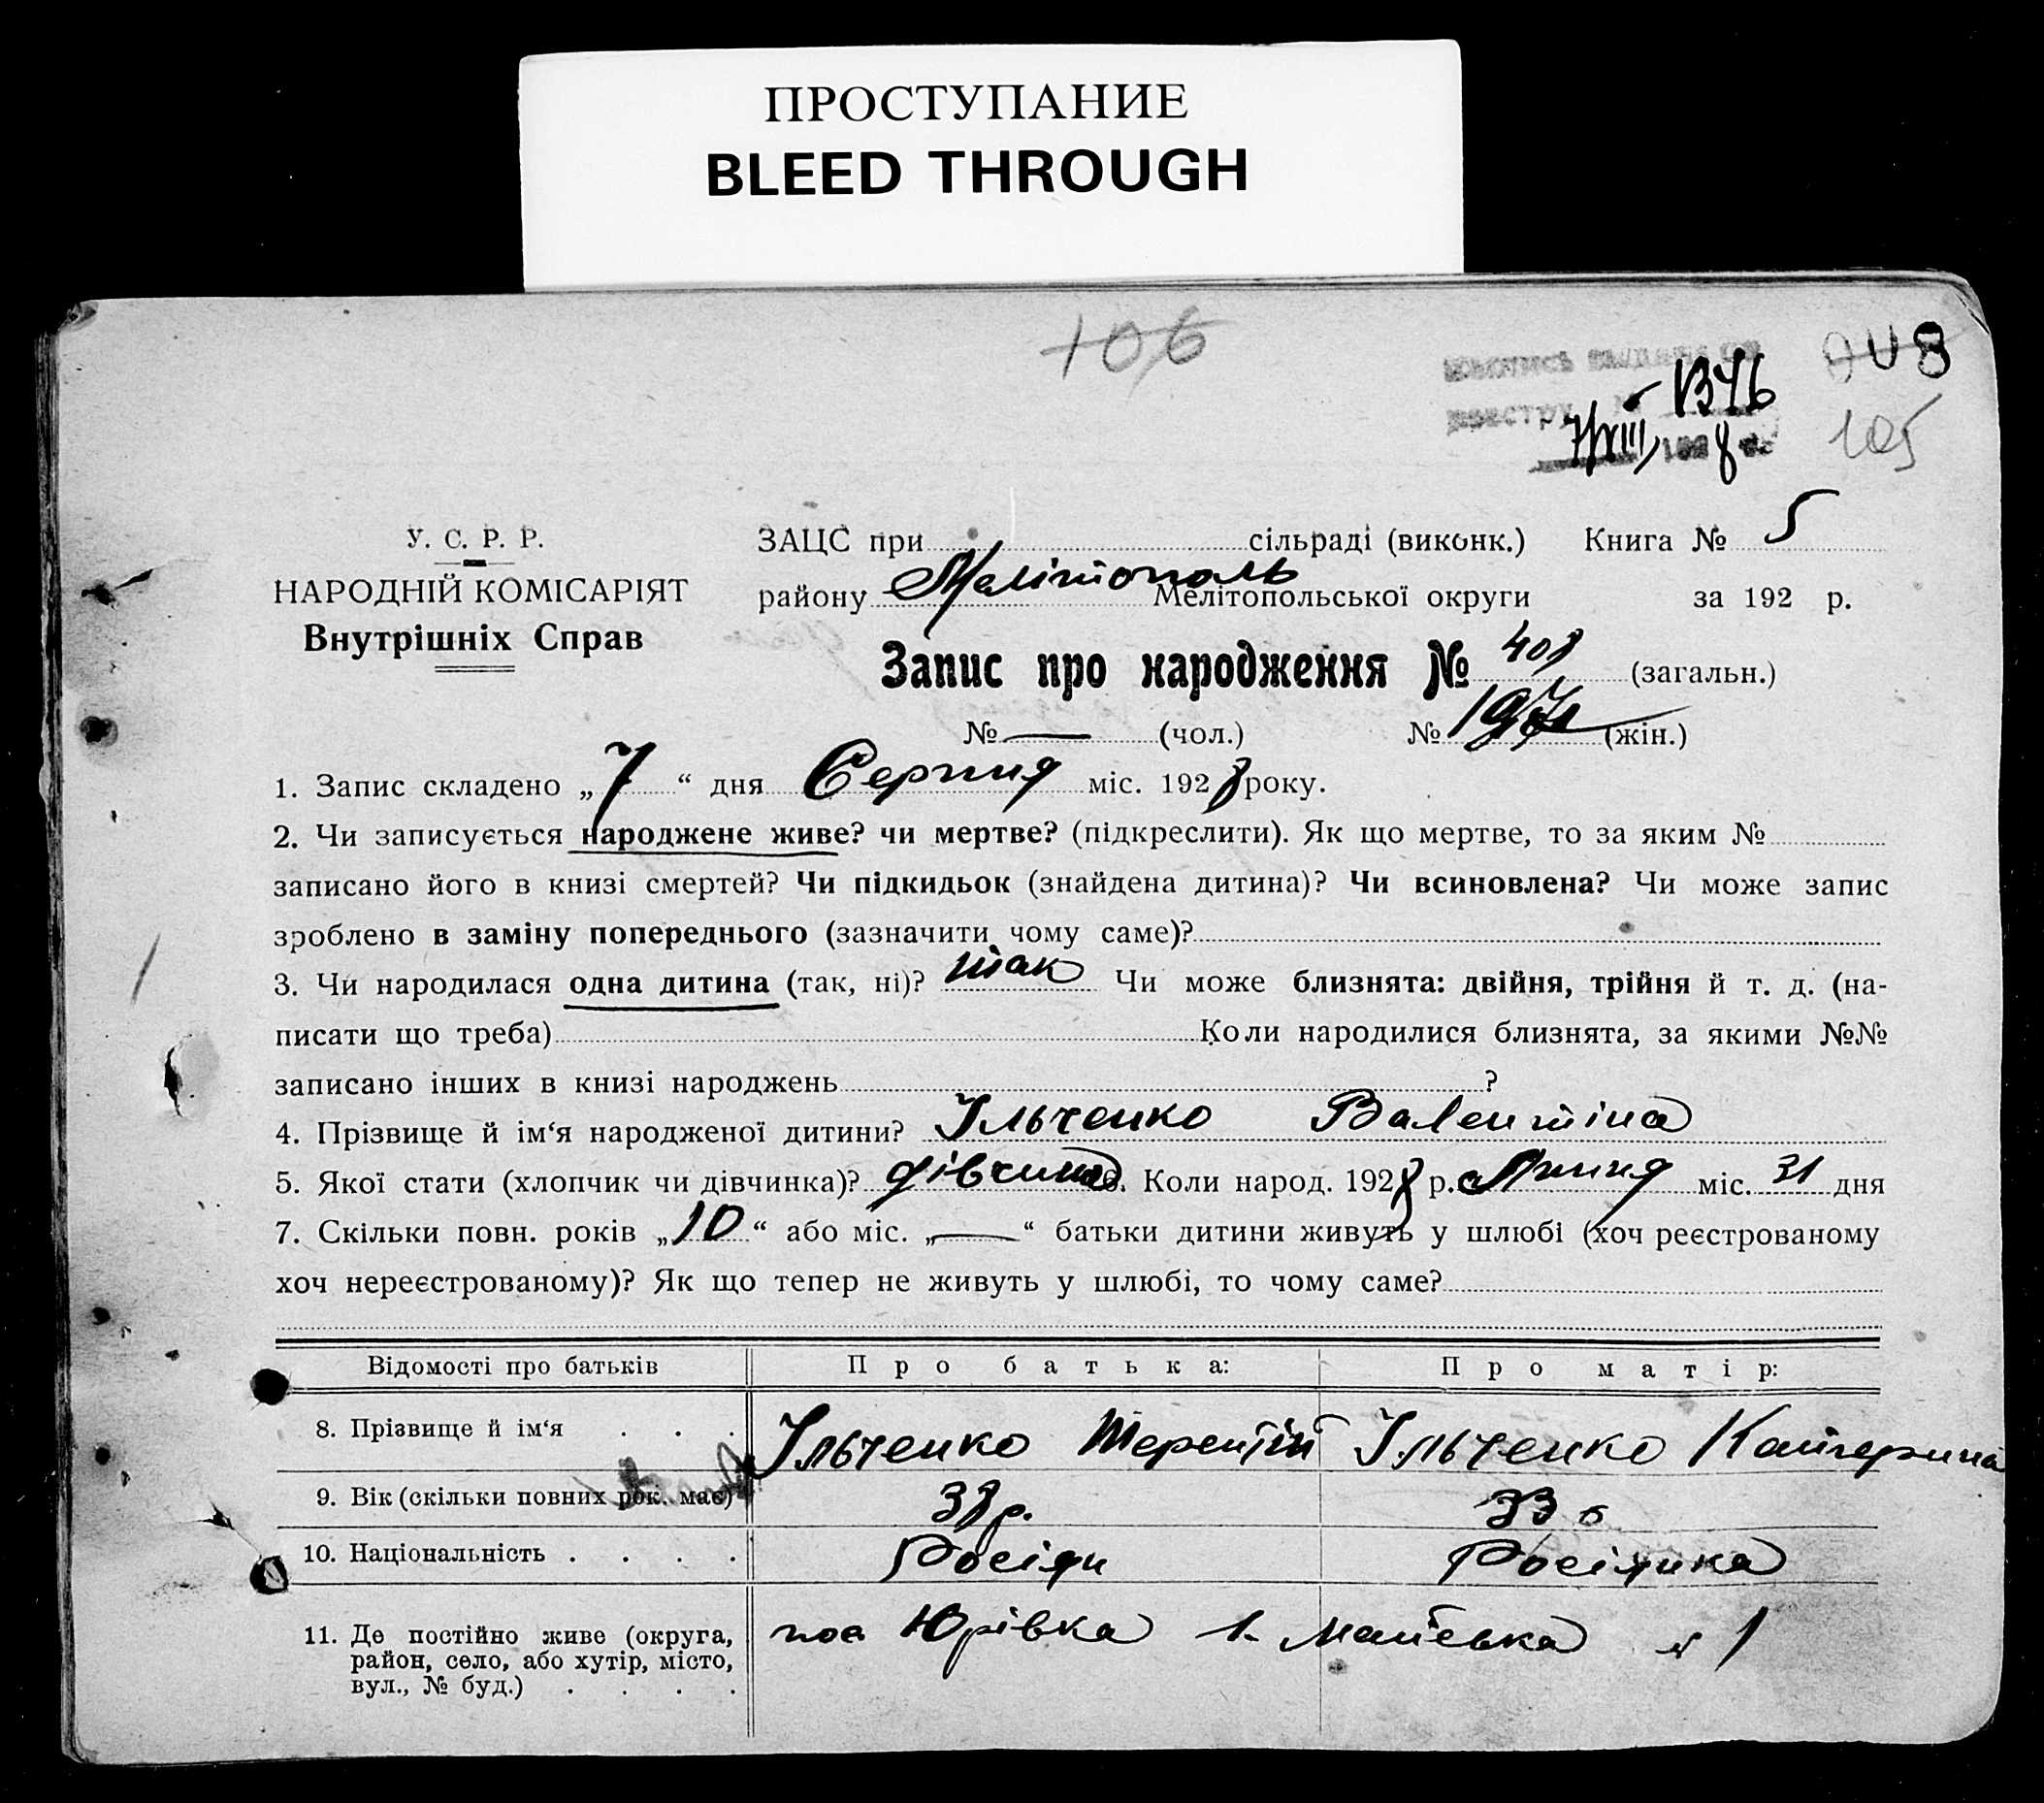 ПРОСТУПАНИЕ
BLEED THROUGH
106
8
1346
7/VIII 1928 р.
105
У. С. Р. Р.
НАРОДНІЙ КОМІСАРІЯТ
Внутрішніх Справ
ЗАЦС при сільраді (виконк.) Книга № 5
району Мелітополь Мелітопольської округи за 192 р.
Запис про народження № 408 (загальн.)
№ — (чол.) № 197 (жін.)
1. Запис складено „7“ дня Серпня міс. 1928 року.
2. Чи записується народжене живе? чи мертве? (підкреслити). Як що мертве, то за яким №
записано його в книзі смертей? Чи підкидьок (знайдена дитина)? Чи всиновлена? Чи може запис
зроблено в заміну попереднього (зазначити чому саме)?
3. Чи народилася одна дитина (так, ні)? так Чи може близнята: двійня, трійня й т. д. (на-
писати що треба) Коли народилися близнята, за якими №№
записано інших в книзі народжень ?
4. Прізвище й ім‘я народженої дитини? Ільченко Валентіна
5. Якої стати (хлопчик чи дівчинка)? дівчина 6. Коли народ. 1928 р. Липня міс. 31 дня
7. Скільки повн. років „10“ або міс. „—“ батьки дитини живуть у шлюбі (хоч реєстрованому
хоч нереєстрованому)? Як що тепер не живуть у шлюбі, то чому саме?
Відомості про батьків Про батька: Про матір:
8. Прізвище й ім‘я . . . Ільченко Терентій Ільченко Катерина
9. Вік (скільки повних рок. має) 38 р. 33
10. Національність . . . . Росіян Росіянка
11. Де постійно живе (округа,
район, село, або хутір, місто,
вул., № буд.) . . . .
пос Юрівка Маївська № 1